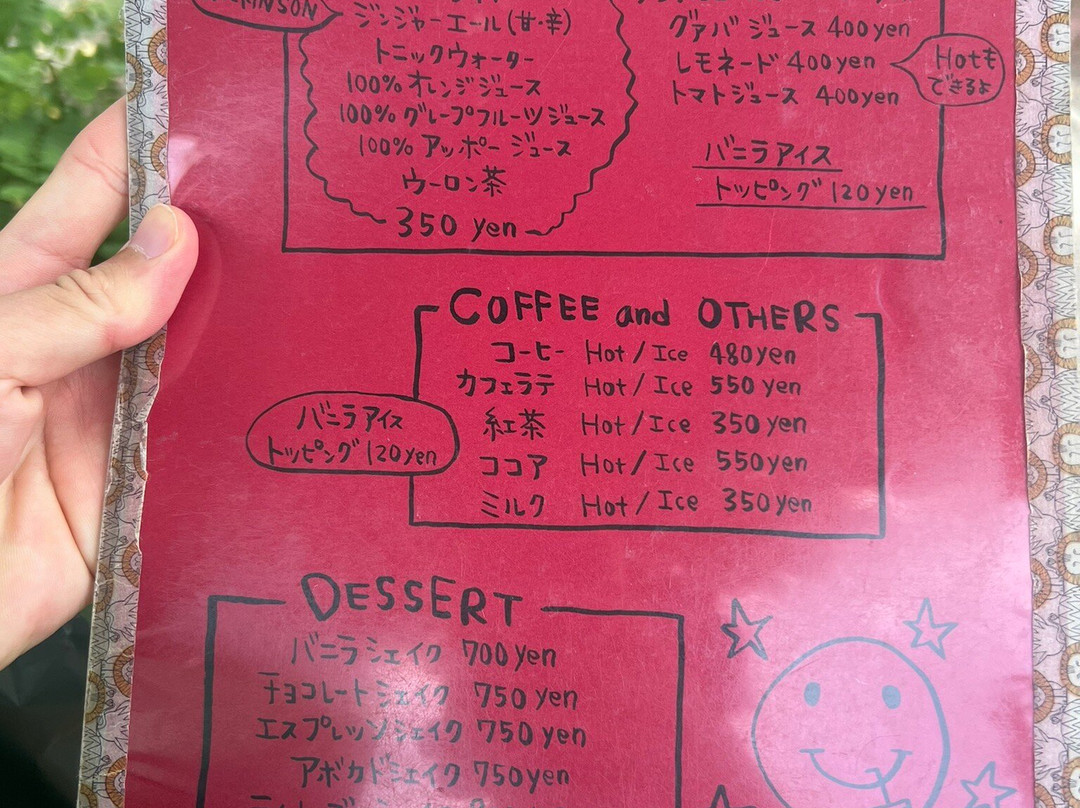 ジンジャーエール(甘・辛)
トニックウォーター
100% オレンジジュース
100% グレープフルーツジュース
100% アッポー ジュース
ウーロン茶
350 yen
グァバ ジュース 400 yen
レモネード 400 yen
Hotも
できるよ
トマトジュース 400 yen
バニラアイス
トッピング 120 yen
COFFEE and OTHERS
コーヒー Hot / Ice 480 yen
カフェラテ Hot / Ice 550 yen
紅茶 Hot / Ice 350 yen
ココア Hot / Ice 550 yen
ミルク Hot / Ice 350 yen
バニラアイス
トッピング 120 yen
DESSERT
バニラシェイク 700 yen
チョコレートシェイク 750 yen
エスプレッソシェイク 750 yen
アボカドシェイク 750 yen